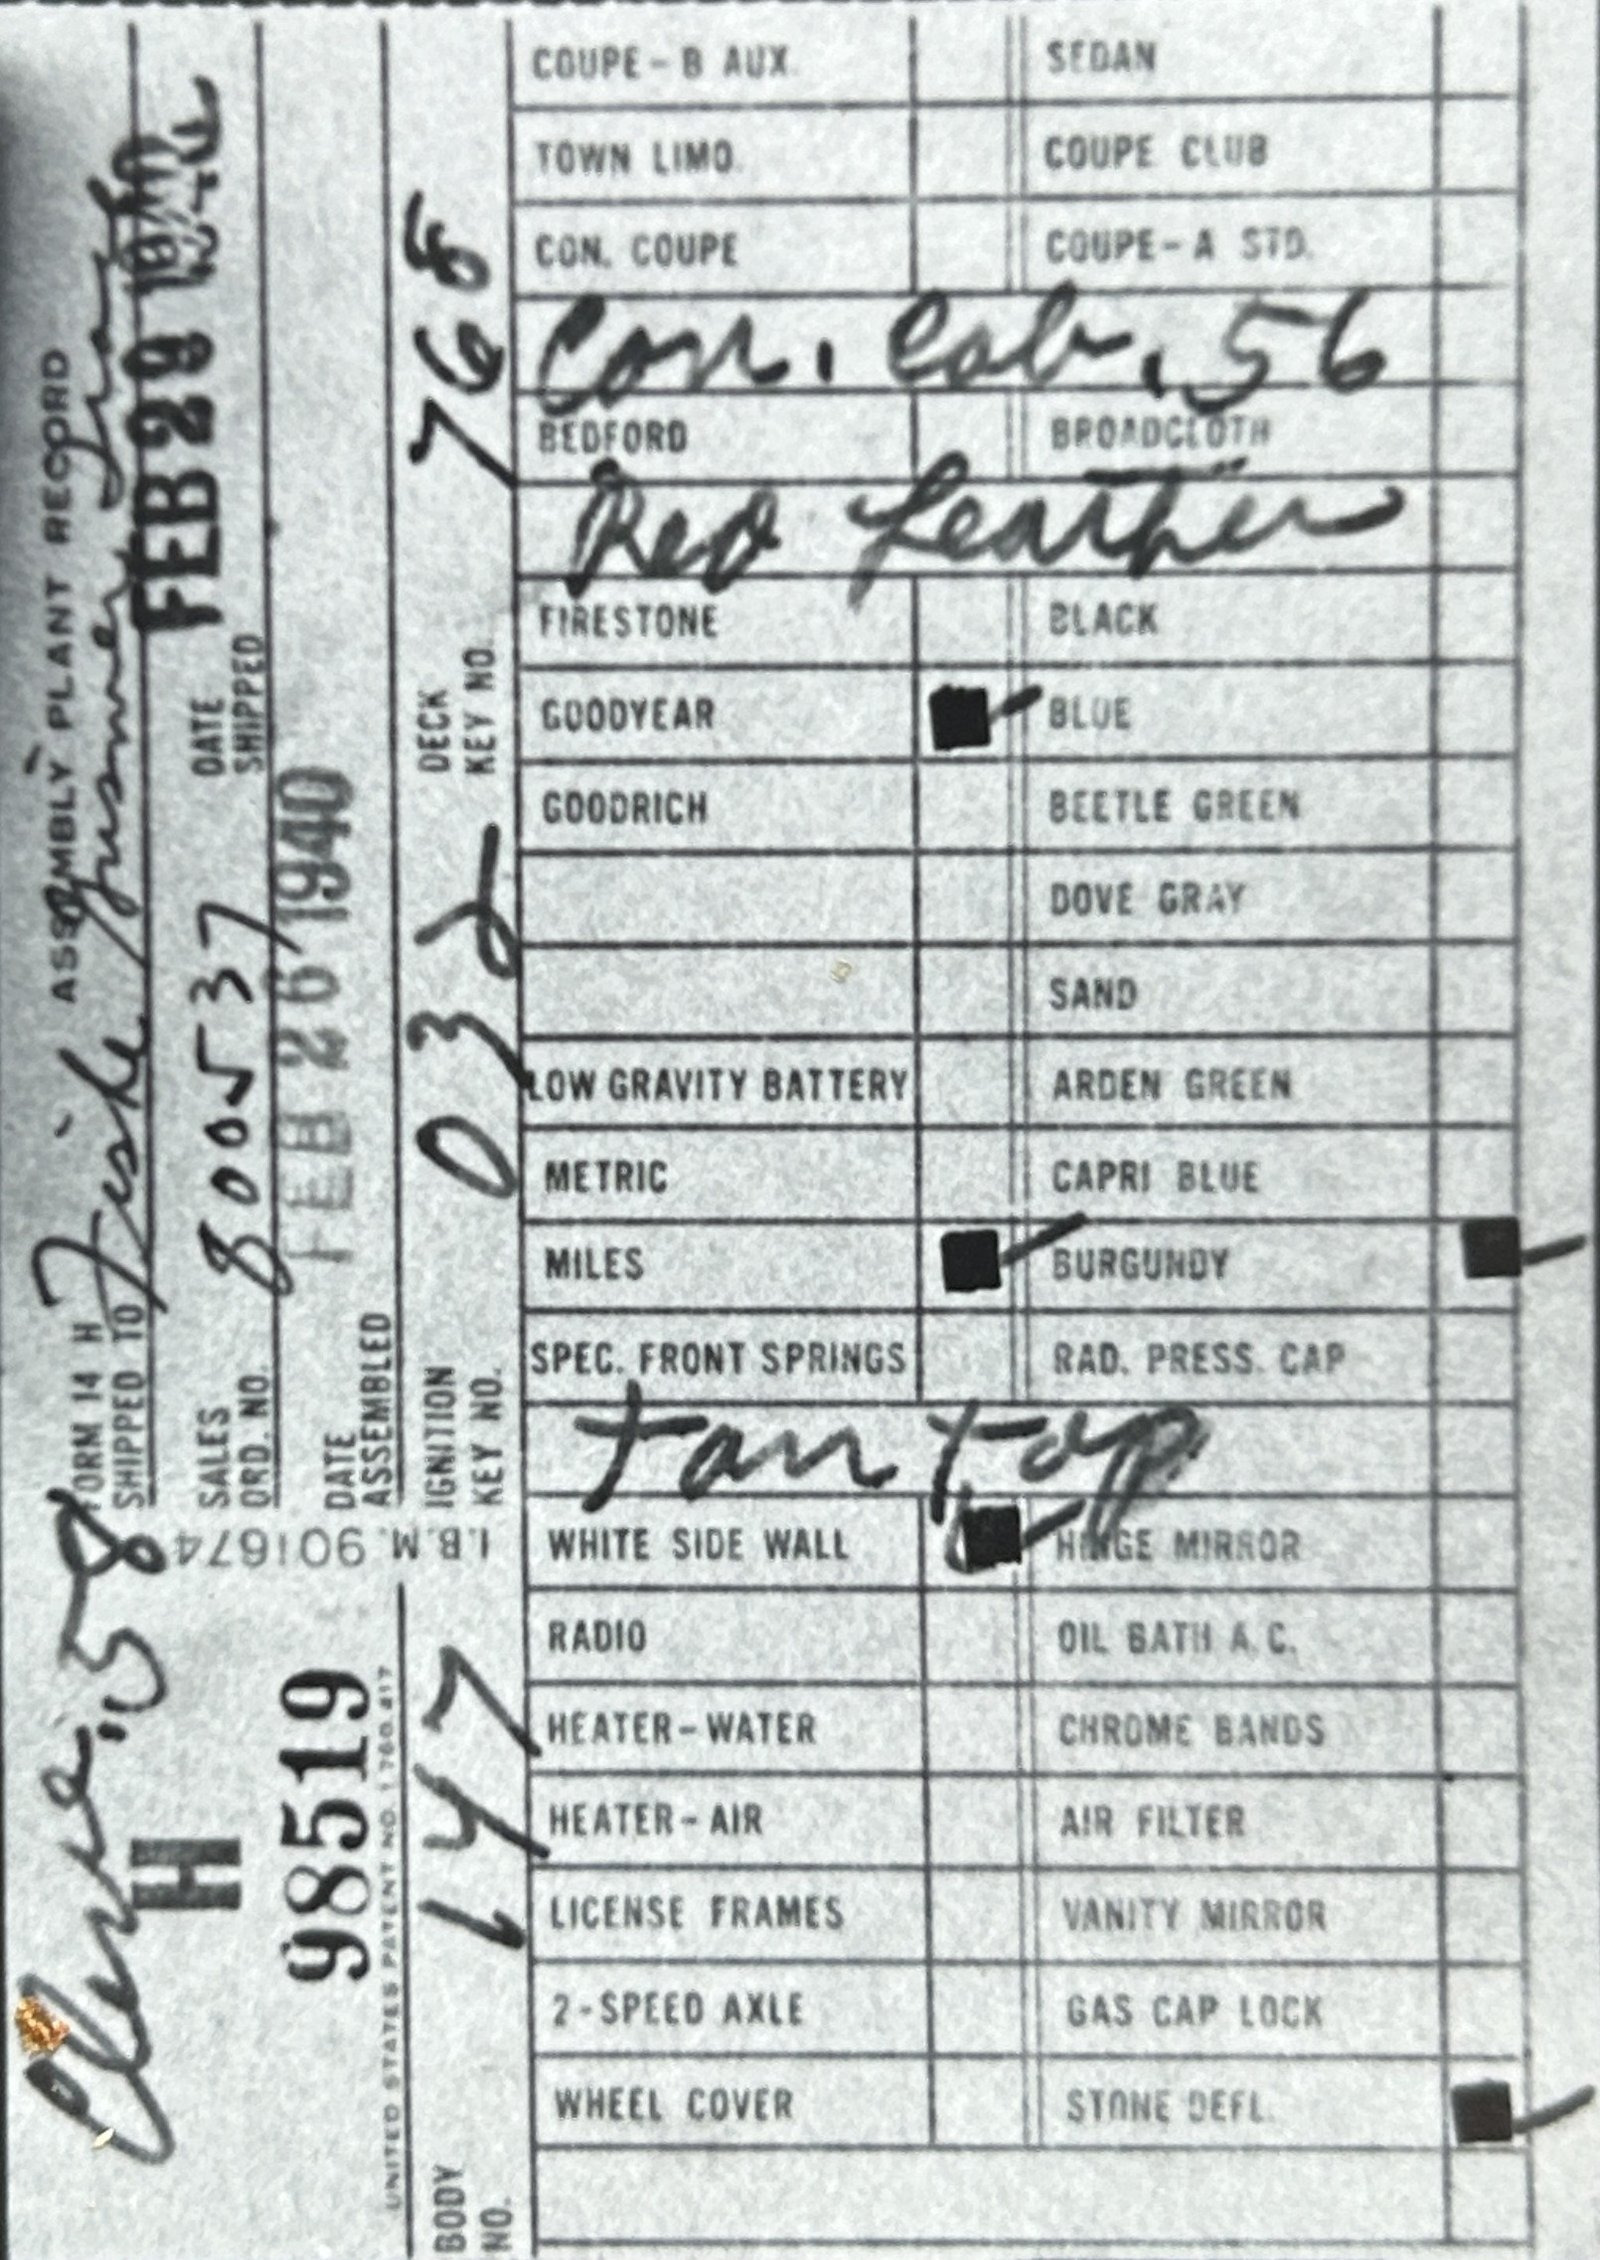 FORM 14 H ASSEMBLY PLANT RECORD
SHIPPED TO Fiske
SALES ORD. NO. 800537 DATE SHIPPED FEB 29 1940
DATE ASSEMBLED FEB 26 1940
IGNITION KEY NO. 032 DECK KEY NO. 768
58
H
98519
UNITED STATES PATENT NO. 1 780 417
I.B.M. 901674
BODY NO. 147
COUPE - B AUX. SEDAN
TOWN LIMO. COUPE CLUB
CON. COUPE COUPE - A STD.
Con. Cab. 56
BEDFORD BROADCLOTH
Red Leather
FIRESTONE BLACK
GOODYEAR BLUE
GOODRICH BEETLE GREEN
DOVE GRAY
SAND
LOW GRAVITY BATTERY ARDEN GREEN
METRIC CAPRI BLUE
MILES BURGUNDY
SPEC. FRONT SPRINGS RAD. PRESS. CAP
Tan top
WHITE SIDE WALL HINGE MIRROR
RADIO OIL BATH A.C.
HEATER - WATER CHROME BANDS
HEATER - AIR AIR FILTER
LICENSE FRAMES VANITY MIRROR
2 - SPEED AXLE GAS CAP LOCK
WHEEL COVER STONE DEFL.